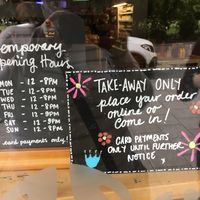 Temporary
Opening Hours
MON - 12-8PM
TUE - 12-8PM
WED - 12-8PM
THU - 12-8PM
FRI - 12-9PM
SAT - 12-9PM
SUN - 12-8PM
card payments only!
TAKE-AWAY ONLY
place your order
online or
Come in!
CARD PAYMENTS
ONLY UNTIL FURTHER
NOTICE